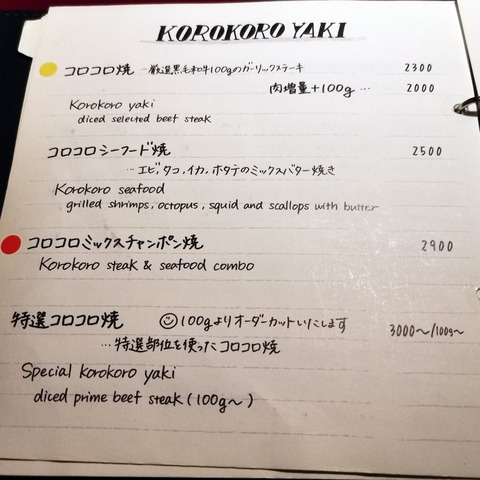 KOROKORO YAKI
コロコロ焼 －厳選黒毛和牛100gのガーリックステーキ 2300
肉増量+100g … 2000
Korokoro yaki
diced selected beef steak
コロコロシーフード焼 2500
…エビ,タコ,イカ,ホタテのミックスバター焼き
Korokoro seafood
grilled shrimps, octopus, squid and scallops with butter
コロコロミックスチャンポン焼 2900
Korokoro steak & seafood combo
特選コロコロ焼 100gよりオーダーカットいたします 3000〜/100g〜
…特選部位を使ったコロコロ焼
Special korokoro yaki
diced prime beef steak (100g〜)